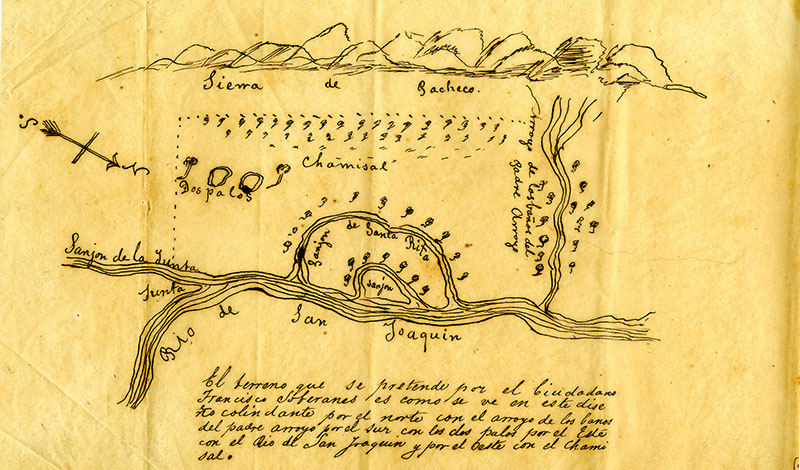 Sierra de Pacheco.
S
N
Chamisal
Dos palos
Arroyo de los baños del
Padre Arroyo
Sanjon de Santa Rita
Sanjon
Sanjon de la Junta
Junta
Rio de San Joaquin
El terreno que se pretende por el Ciudadano
Francisco Soberanes es como se ve en este dise
ño colindante por el norte con el arroyo de los banos
del padre arroyo por el sur con los dos palos por el Este
con el Rio de San Joaquin y por el Oeste con el Chami
sal.